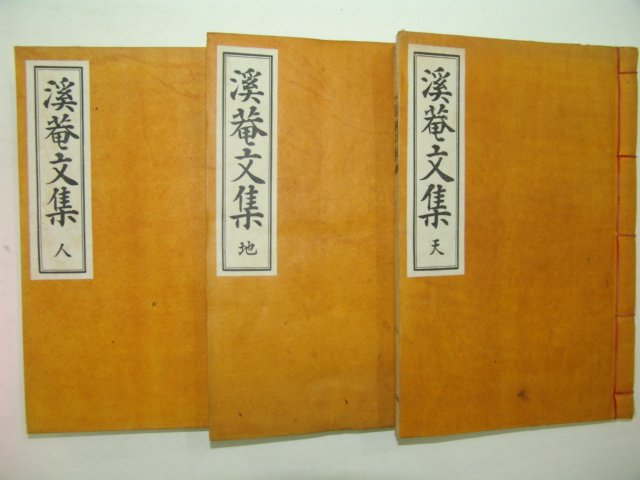 溪菴文集 天
溪菴文集 地
溪菴文集 人